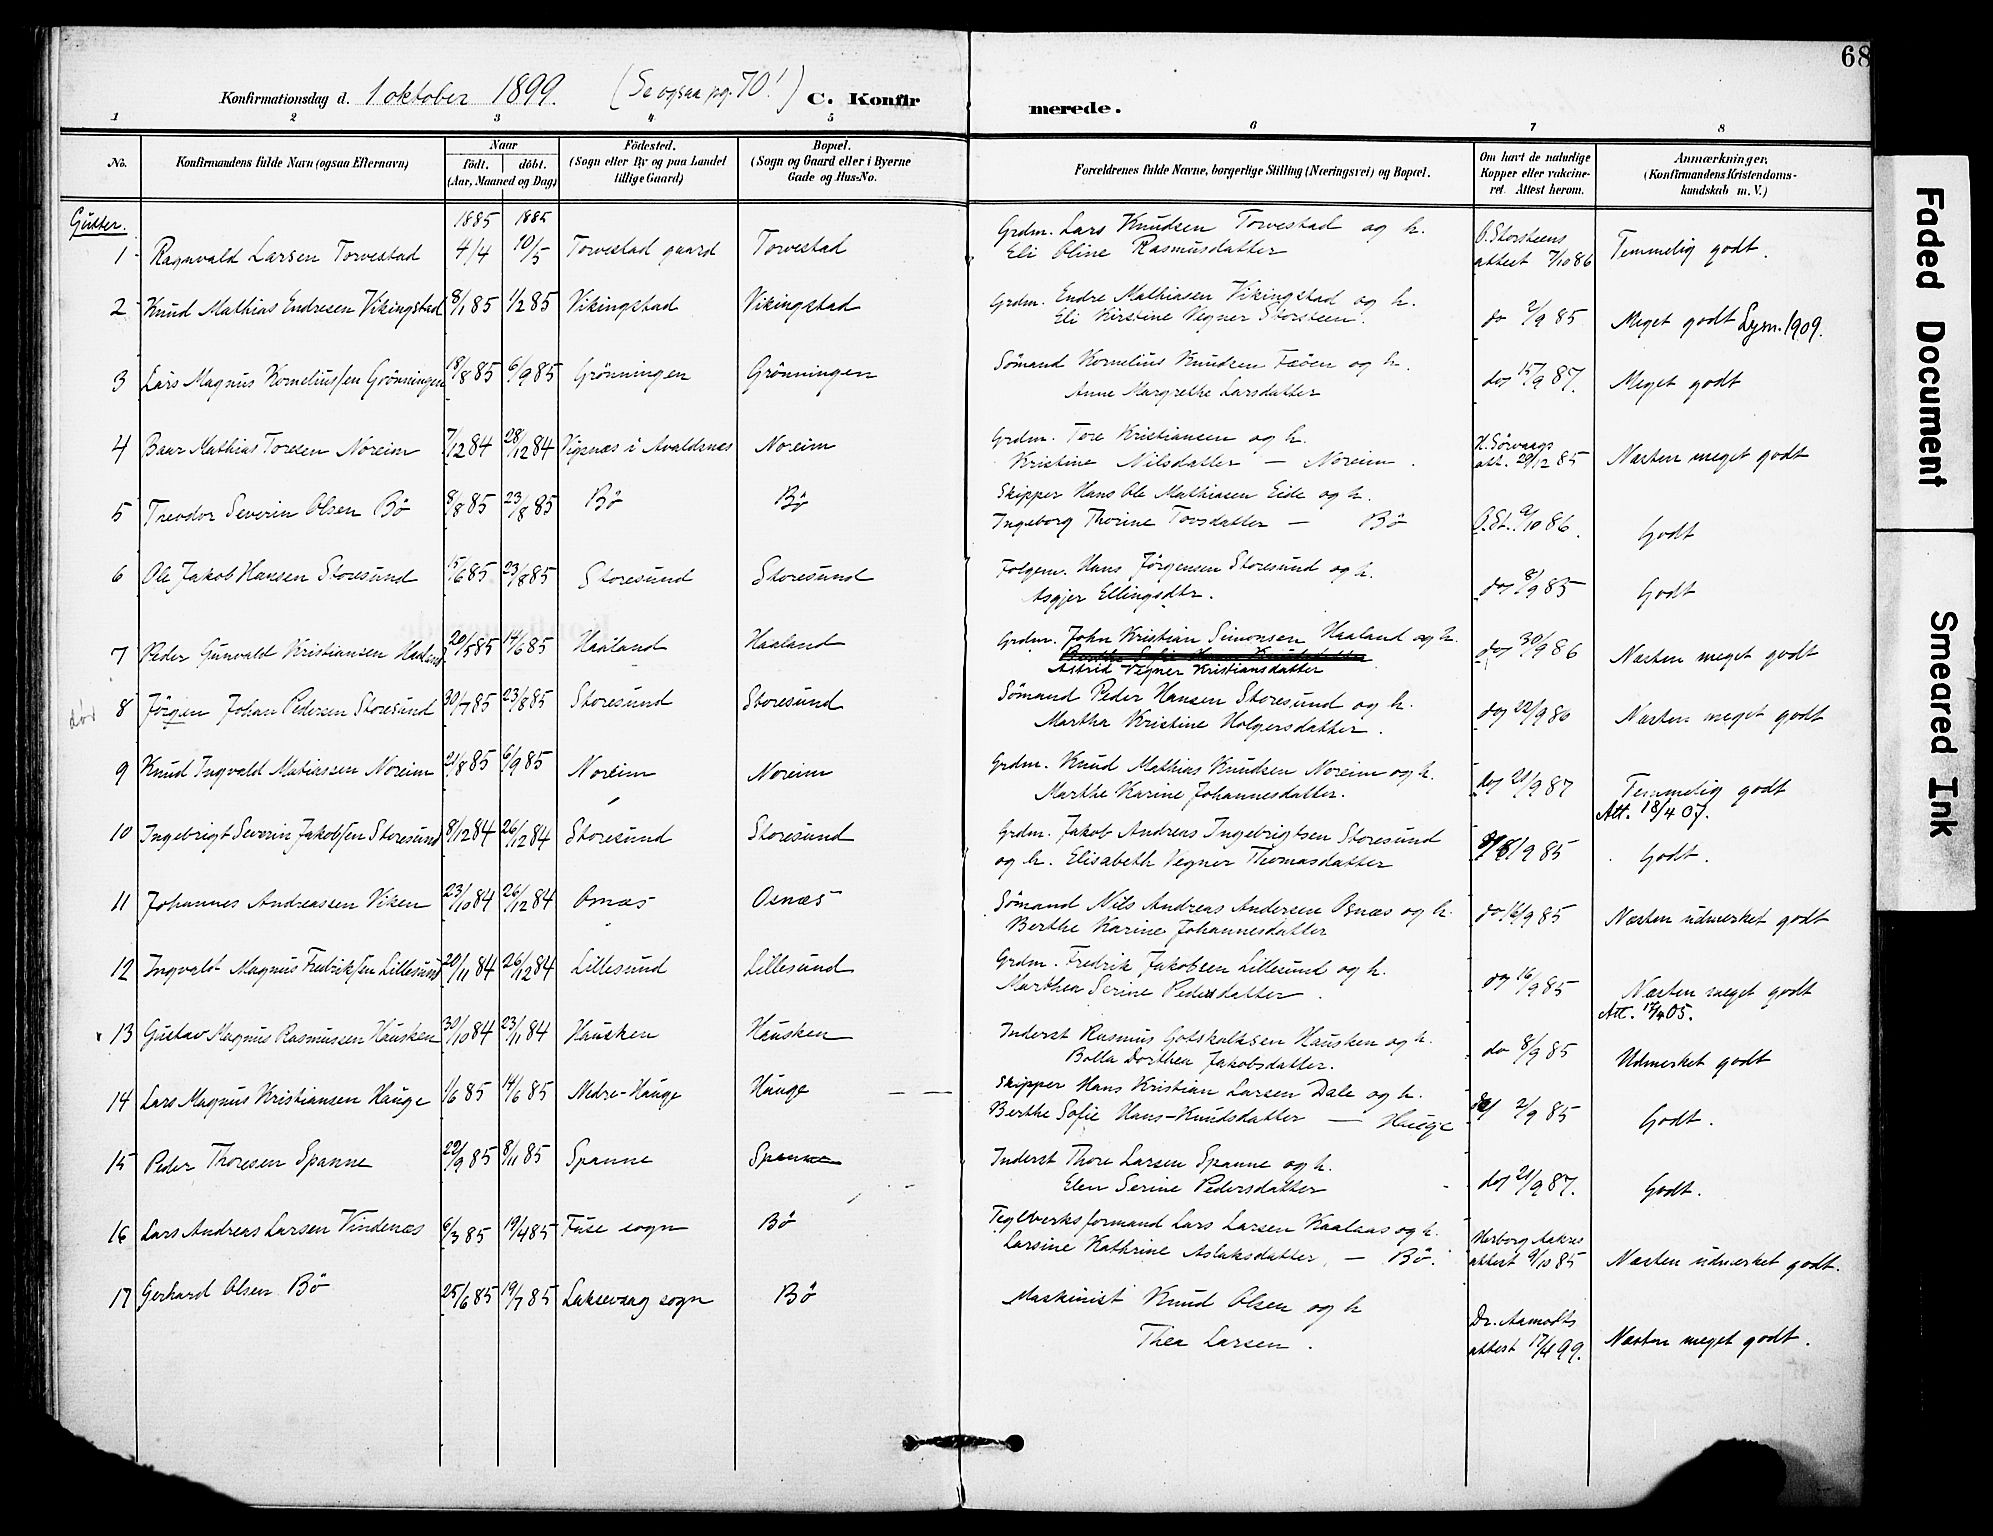 68
Konfirmationsdag d. 1 oktober 1899. (Se ogsaa pg. 70!) C. Konfir merede.
1 2 3 4 5 6 7 8
No. Konfirmandens fulde Navn (ogsaa Efternavn) Naar født. døbt. (Aar, Maaned og Dag) Fødested. (Sogn eller By og paa Landet tillige Gaard) Bopæl. (Sogn og Gaard eller i Byerne Gade og Hus-No. Forældrenes fulde Navne, borgerlige Stilling (Næringsvei) og Bopæl. Om havt de naturlige Kopper eller vakcineret. Attest herom. Anmærkninger. (Konfirmandens Kristendomskundskab m. V.)
Gutter. 1885 1885
1 Ragnvald Larsen Torvestad 4/4 10/5 Torvestad gaard Torvestad Grdm. Lars Knudsen Torvestad og h. O. Storsteens Temmelig godt.
Eli Oline Rasmusdatter attest 7/10 86
2 Knud Mathias Endresen Vikingstad 8/1 85 1/2 85 Vikingstad Vikingstad Grdm. Endre Mathiasen Vikingstad og h. do 2/9 85 Meget godt Lysn. 1909.
Eli Kirstine Vegner Storsteen.
3 Lars Magnus Kornelius/en Grönningen 18/8 85 6/9 85 Grönningen Grönningen Sømand Kornelius Knudsen Fæöen og h. do 15/9 87. Meget godt
Anne Margrethe Larsdatter
4 Baar Mathias Toresen Noreim 7/12 84 28/12 84 Vigsnæs i Avaldsnes Noreim Grdm. Tore Kristiansen og h. H. Sørvaags Næsten meget godt
Kristine Nilsdatter — Noreim. att. 29/12 85
5 Theodor Severin Olsen Bö 8/8 85 23/8 85 Bö Bö Skipper Hans Ole Mathiasen Eide og h.
Ingeborg Thorine Torsdatter — Bö O. St. 9/10 86. Godt
6 Ole Jakob Hansen Storesund 15/6 85 23/8 85 Storesund Storesund Folgem. Hans Jörgensen Storesund og h. do 8/9 85 Godt
Asgjer Ellingsdtr.
7 Peder Gunvald Kristiansen Haaland 20/5 85 14/6 85 Haaland Haaland Grdm. John Kristian Simonsen Haaland og h. do 30/9 86 Næsten meget godt
Berthe Sofie Hans Knudsdatter
Astrid Vegner Kristiansdatter
død 8 Jörgen Johan Pedersen Storesund 30/7 85 23/8 85 Storesund Storesund Sömand Peder Hansen Storesund og h. do 22/9 86 Næsten meget godt
Marthe Kristine Holgersdatter.
9 Knud Ingvald Matiassen Noreim 21/8 85 6/9 85 Noreim Noreim Grdm. Knud Mathias Knudsen Noreim og h. do 21/9 87 Temmelig godt
Marthe Karine Johannesdatter. Att. 18/4 07.
10 Ingebrigt Severin Jakob/en Storesund 8/12 84 26/12 84 Storesund Storesund Grdm. Jakob Andreas Ingebrigtsen Storesund
og h. Elisabeth Vegner Thomasdatter 8/9 85 Godt.
11 Johannes Andreassen Viken 23/10 84 26/12 84 Osnæs Osnæs Sømand Nils Andreas Andersen Osnæs og h. do 16/9 85 Næsten udmerket godt
Berthe Karine Johannesdatter
12 Ingvald Magnus Fredrik/en Lillesund 20/11 84 26/12 84 Lillesund Lillesund Grdm. Fredrik Jakobsen Lillesund og h. do 16/9 85 Næsten meget godt
Marthea Serine Pedersdatter. Att. 17/4 05.
13 Gustav Magnus Rasmussen Hausken 30/10 84 23/11 84 Hausken Hausken Inderst Rasmus Gotskalksen Hausken og h. do 8/9 85 Udmerket godt
Bolla Dorthea Jakobsdatter.
14 Lars Magnus Kristiansen Hauge 1/6 85 14/6 85 Nedre-Hauge Hauge Skipper Hans Kristian Larsen Dale og h. do 2/9 85 Godt.
Berthe Sofie Hans-Knudsdatter — Hauge
15 Peder Thoresen Spanne 22/9 85 8/11 85 Spanne Spanne Inderst Thore Larsen Spanne og h. do 21/9 87. Godt.
Elen Serine Pedersdatter
16 Lars Andreas Larsen Vindenæs 6/3 85 19/4 85 Fuse sogn Bö Teglverksformand Lars Larsen Kaalaas og h. Herborg Aakres Næsten udmerket godt.
Larsine Kathrine Aslaksdatter, — Bö. attest 9/10 85
17 Gerhard Olsen Bö 25/6 85 19/7 85 Laksevaag sogn Bö Maskinist Knud Olsen og h Dr. Aamodts Næsten meget godt.
Thea Larsen. attest 17/4 99.
Faded Document
Smeared Ink